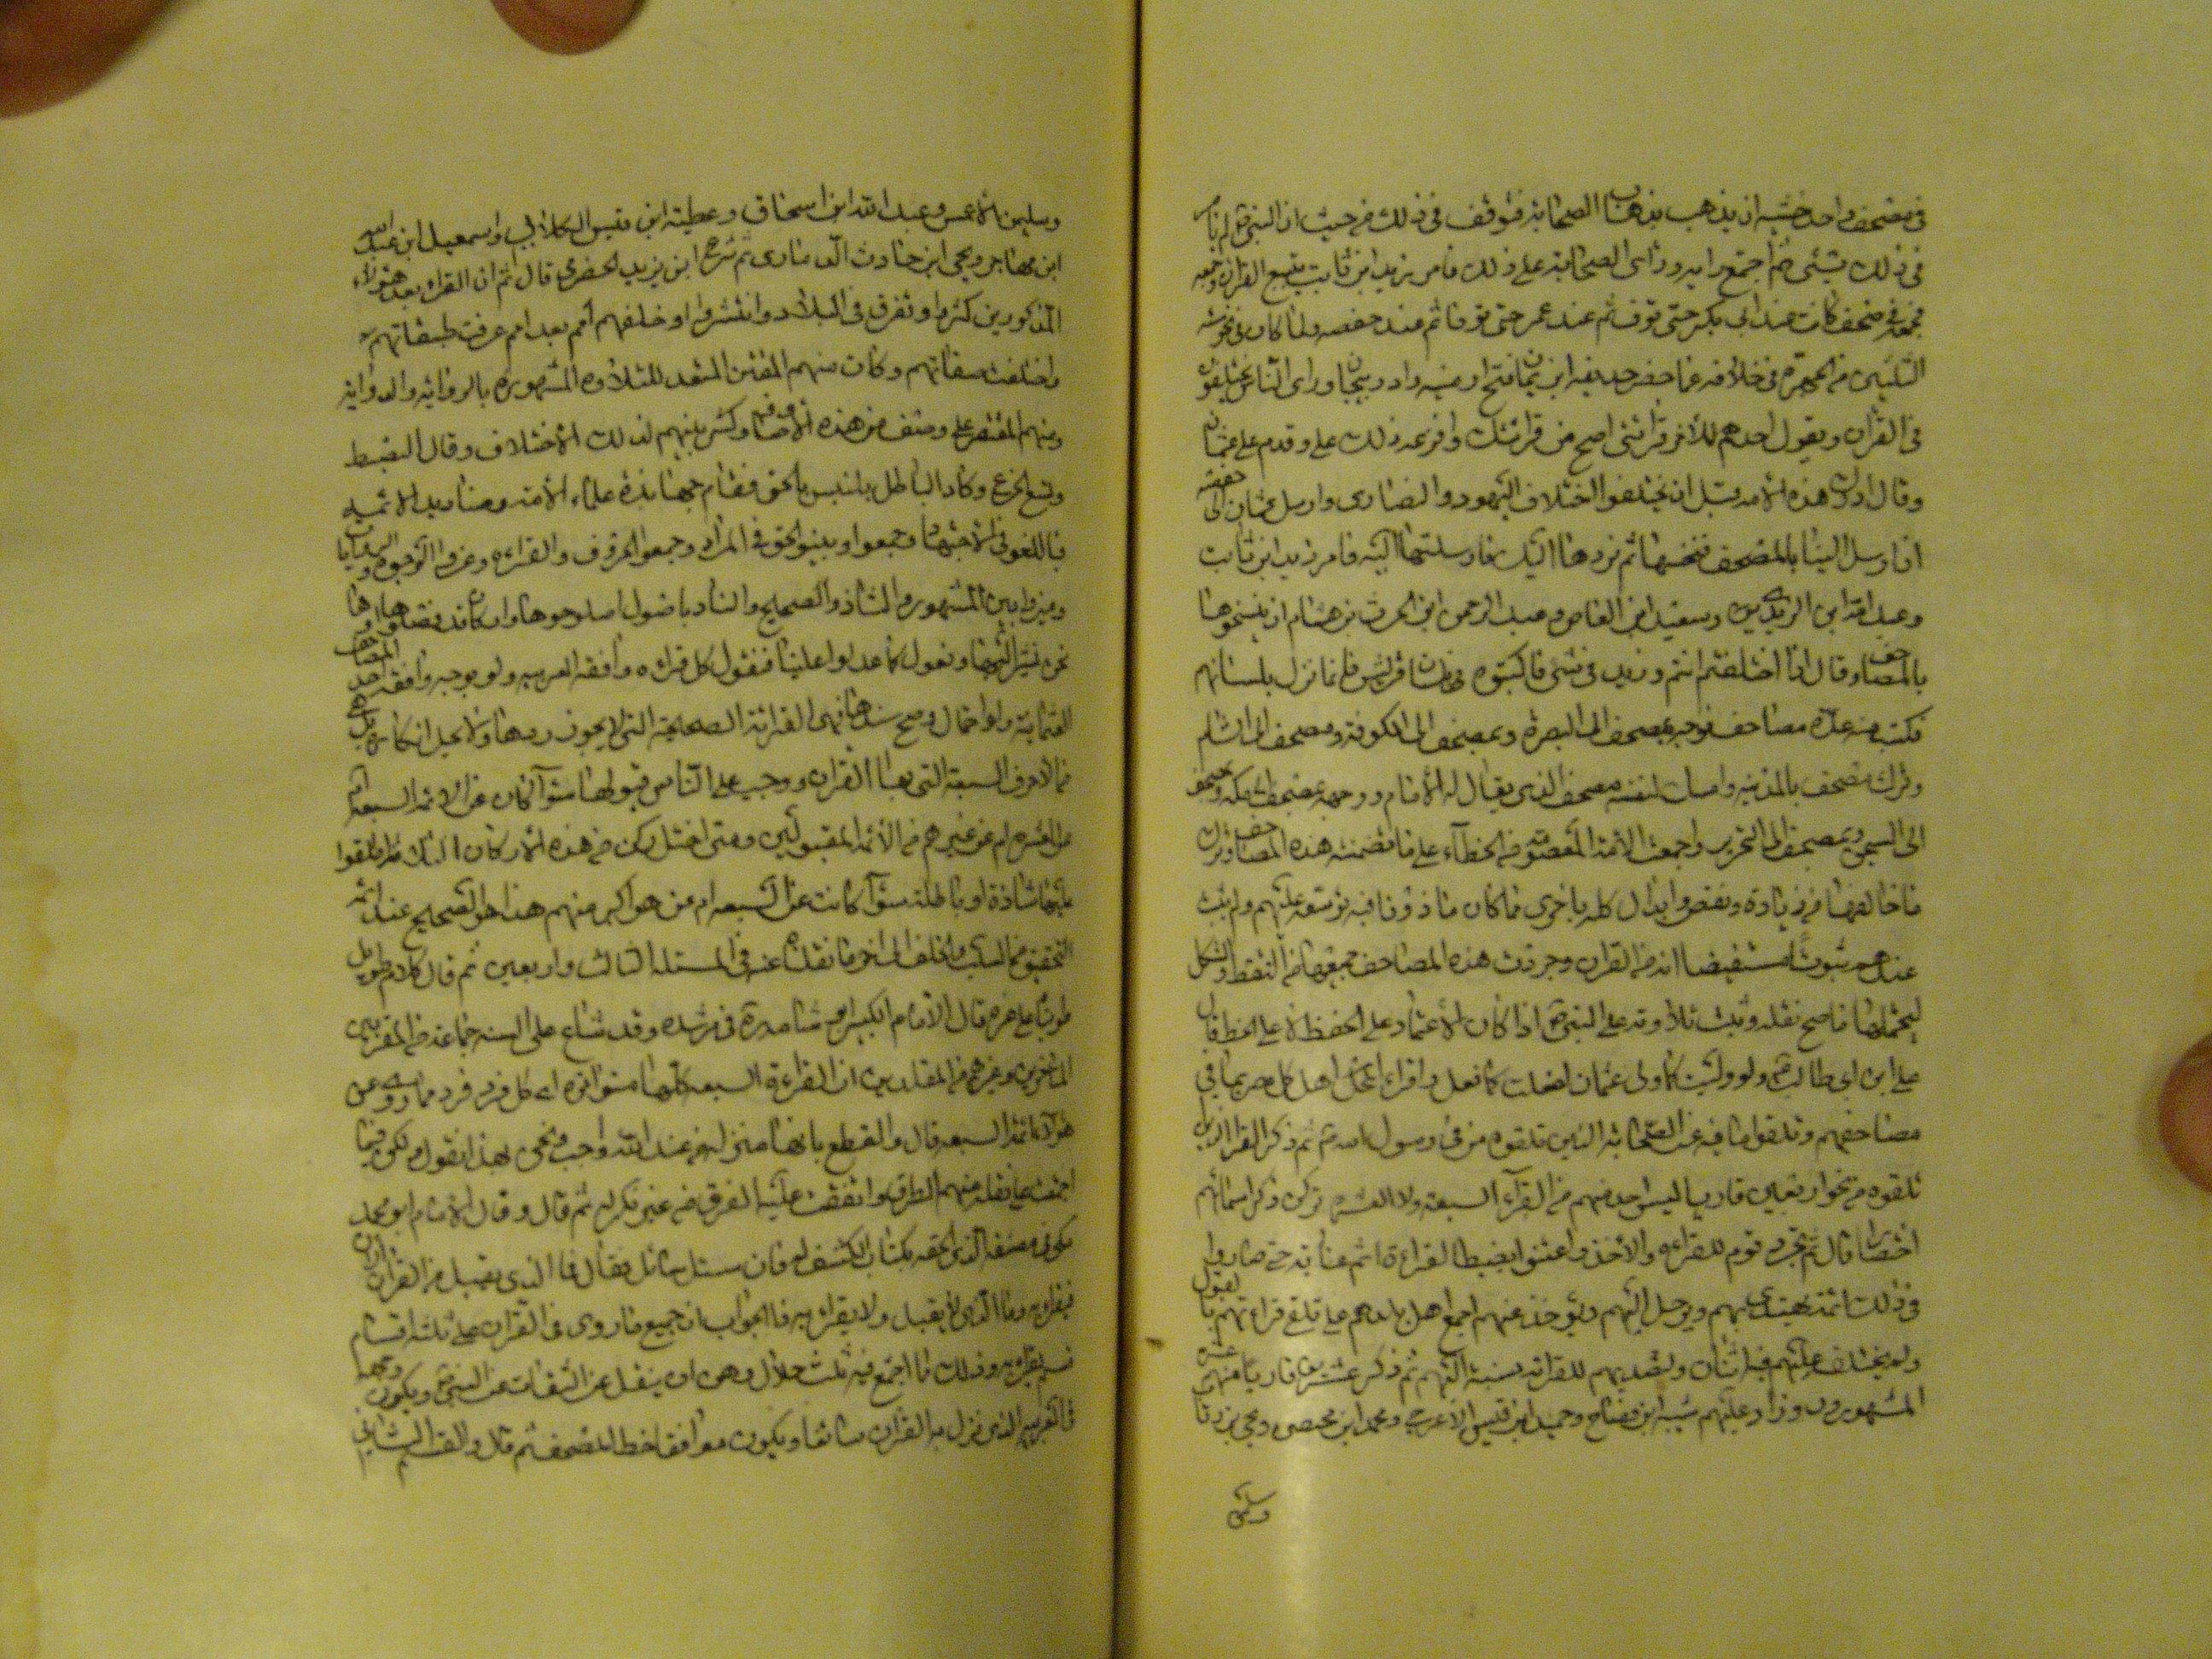 في مصحف واحد خشية ان يذهب بذهاب الصحابة فتوقف في ذلك من حيث ان النبي ص لم يأمر
في ذلك بشئ ثم اجتمع رايه وراى الصحابة على ذلك فامر زيد ابن ثابت يتتبع القران وجمعه
فجمعه في صحف كانت عند ابي بكر حتى توفى ثم عند عمر حتى توفى ثم عند حفصه ولما كان في نحو سنة
الثلثين من الهجرة في خلافة عثمان حضر حذيفه ابن يمان فتح ارمنيه واذربيجان وراى الناس يختلفون
في القران ويقول احدهم للاخر قرائتى اصح من قرائتك وافزعه ذلك وقدم على عثمان
وقال ادرك هذه الامه قبل ان يختلفوا اختلاف اليهود والنصارى وارسل عثمان الى حفصه
ان ارسل الينا بالمصحف ننسخها ثم نردها اليك فارسلتها اليه فامر زيد ابن ثابت
وعبد الله ابن الزبير وسعيد ابن العاص وعبد الرحمن ابن الحرث بن هشام ان ينسخوها
بالمصاحف وقال اذا اختلفتم انتم وزيد في شئ فاكتبوه بلسان قريش فانما نزل بلسانهم
فكتب منه عدة مصاحف فوجه بمصحف الى البصرة وبمصحف الى الكوفة ومصحف الى الشام
وترك مصحف بالمدينه وامسك لنفسه مصحف الذي يقال له الامام ووجه بمصحف الى مكه وبمصحف
الى اليمن وبمصحف الى البحرين واجمعت الامة المعصومه من الخطاء على ما تضمنته هذه المصاحف وترك
ما خالفها من زيادة ونقص وابدال كلمه باخرى مما كان ماذونا فيه توسعة عليهم ولم يثبت
عندهم ثبوتا مستفيضا انه من القران وجردت هذه المصاحف جميعها من النقط والشكل
ليحتملها ما صح نقله وثبت تلاوته على النبي ص اذا كان الاعتماد على الحفظ لا على الخط قال
علي ابن ابي طالب ع ولو وليت كما ولى عثمان لفعلت كما فعل واقراء اهل كل مصر بما في
مصاحفهم وتلقوا ما فيه عن الصحابة الذين تلقوه من في رسول الله ص ثم ذكر القراء الذين
تلقوه من نحو اربعين قاريا ليس احد منهم من القراء السبعة ولا العشره تركن ذكر اسمائهم
اختصارا قال ثم تجرد قوم للقراءه والاخذ واعتنوا بضبط القراءة اتم عناية حتى صاروا
في ذلك ائمة يهتدى بهم ويرحل اليهم ويؤخذ عنهم اجمع اهل بلدهم على تلقي قراءتهم بالقبول
ولم يختلف عليهم فيها اثنان ولتصديهم للقرائه نسبت اليهم ثم ذكر عشرين قاريا منهم عشره
المشهورون وزاد عليهم شيبه ابن نصاح وحميد ابن قيس الاعرج ومحمد ابن محيصن ويحيى بن وثاب
وسليمن
وسليمن الاعمس وعبد الله ابن اسحاق وعطية ابن قيس الكلابي واسمعيل ابن عبد الله
ابن مهاجر ويحيى ابن حارث الذمارى ثم شريح ابن يزيد الحضرمي قال ثم ان القراء بعد هؤلاء
المذكورين كثروا وتفرق في البلاد وانتشروا وخلفهم امم بعد امم عرفت طبقاتهم
واختلفت صفاتهم وكان منهم المتقن للتلاوه المشهوره بالروايه والدرايه
ومنهم المقتصر على وصف من هذه الاوصاف وكثر بينهم لذلك الاختلاف وقل الضبط
واتسع الخرق وكاد الباطل يلتبس بالحق فقام جهابذة علماء الامه وصناديد الائمه
فبالغوا في الاجتهاد وجمعوا وبينوا الحق في المراد وجمعوا الحروف والقراءه وعزوا الوجوه والروايات
وميزوا بين المشهوره والشاذ والصحيح والناد باصول اصلوها واركان فصلوها وها
نحن نشير اليها ونعول كما عولوا عليها فنقول كل قراءه وافقه العربيه ولو بوجه وافقه احد المصاحف
العثمانية ولو احتمالا وصح سندها فهى القرائة الصحيحة التي لا يجوز ردها ولا يحل انكارها بل هي
من الاحرف السبعة التى بها القران ووجب على الناس قبولها سوآ كان عن الائمه السبعه ام
من العشره ام عن غيرهم من الائمه المقبولين ومتى اختل ركن من هذه الاركان الثلاثه اطلقوا
عليها شاذة او باطلة سوآ كانت عن السبعه ام من هو اكبر منهم هذا هو الصحيح عند ائمه
التحقيق من السلف والخلف الى اخر ما نقلناه عنه في المسئله الثالث واربعين ثم قال كلام طويل
طوينا على غره قال الامام الكبير ابو شامه في مرشده وقد شاع على السنه جماعه من المقريين
المتاخرين وغيرهم من المقلدين ان القراءة السبعه كلها متواتره اى كل فرد فرد ما روى عن
هؤلاء الائمه السبعه قال والقطع بانها منزله من عند الله واجب ونحن بهذا نقول ولكن فيما
اجتمعت على نقله منهم الطرق واتفقت عليه الفرق من غير نكير له ثم قال وقال الامام ابو محمد
مكى في مصنفه الذي الحقه بكتاب الكشف له فان سئل سائل فقال فما الذى يقبل من القران الان
فيقراء به وما الذي لا يقبل ولا يقراء به فالجواب ان جميع ما روى في القران على ثلثه اقسام
قسم يقراء به وذلك ما اجتمع فيه ثلث خلال وهى ان ينقل عن الثقات عن النبي ص ويكون وجها
في العربيه الذي نزل به القران سائغا ويكون موافقا خط المصحف ثم قال والقسم الثاني